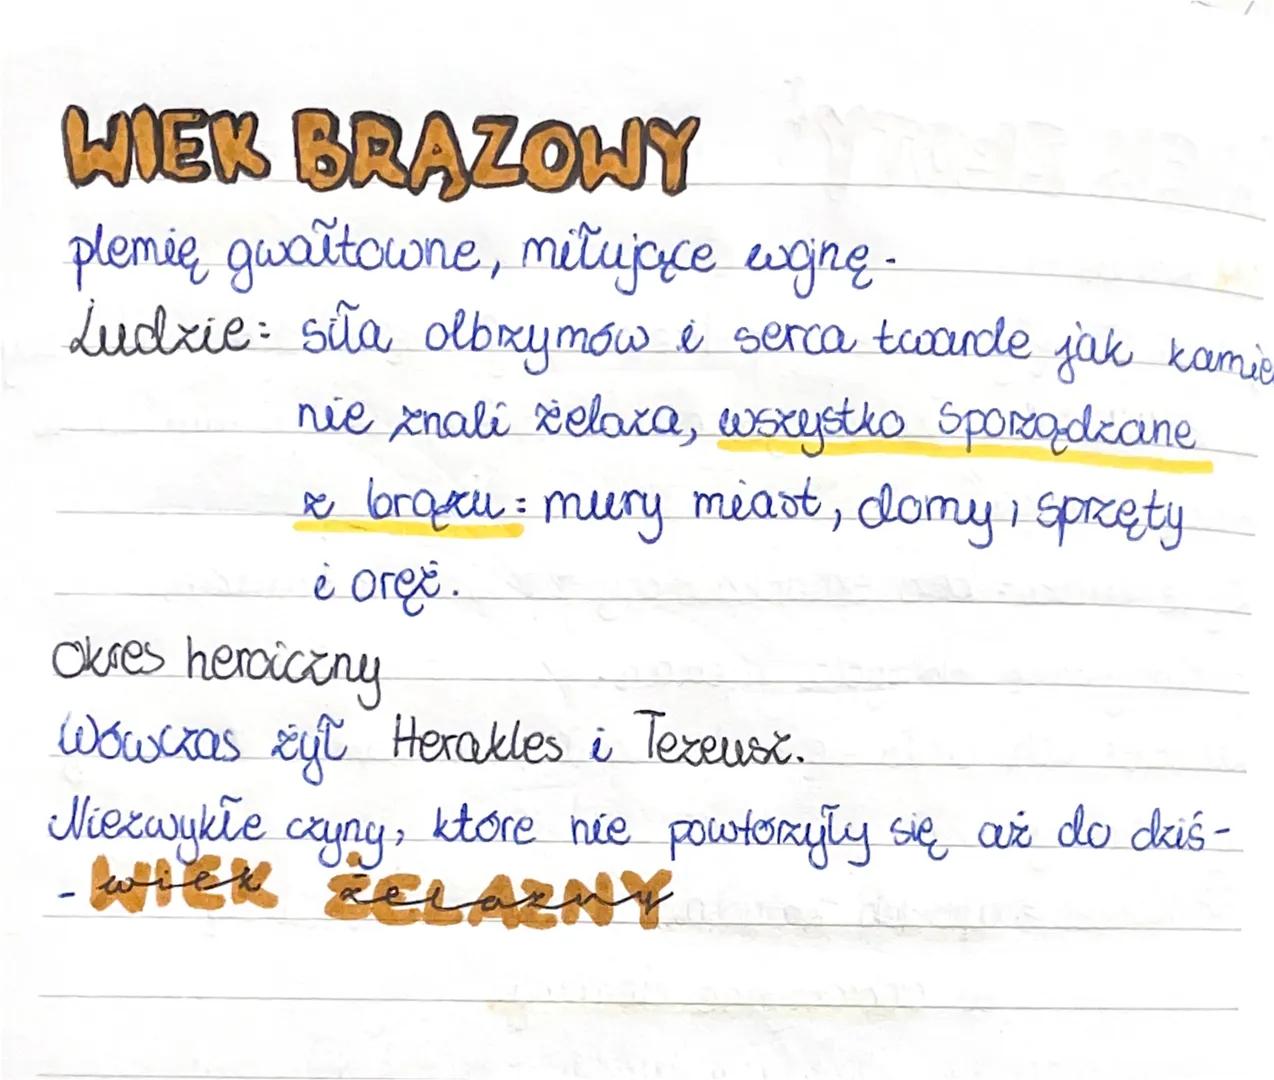 WIEK BRĄZOWY
plemię gwałtowne, miłujące wojnę.
Ludzie: siła olbrzymów i serca twarde jak kamie
nie znali żelaza, wszystko sporządzane
z brązu: mury miast, domy, sprzęty
i oręż.
Okres heroiczny
Wówczas żył Herakles i Tezeusz.
Niezwykłe czyny, które nie powtórzyły się aż do dziś-
- WIEK ŻELAZNY